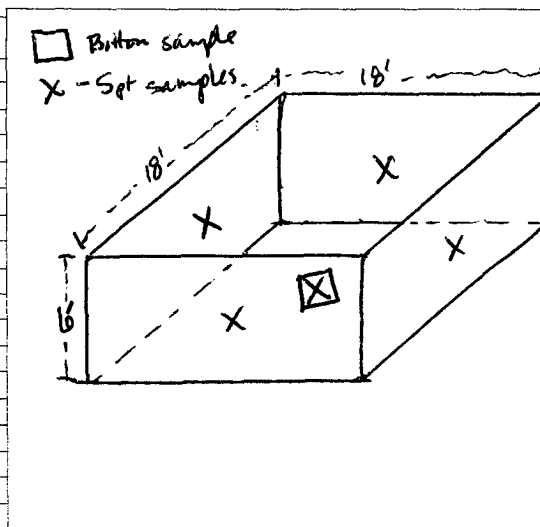 Bottom sample
X - 5pt samples
18'
18'
6'
X
X
X
X
X